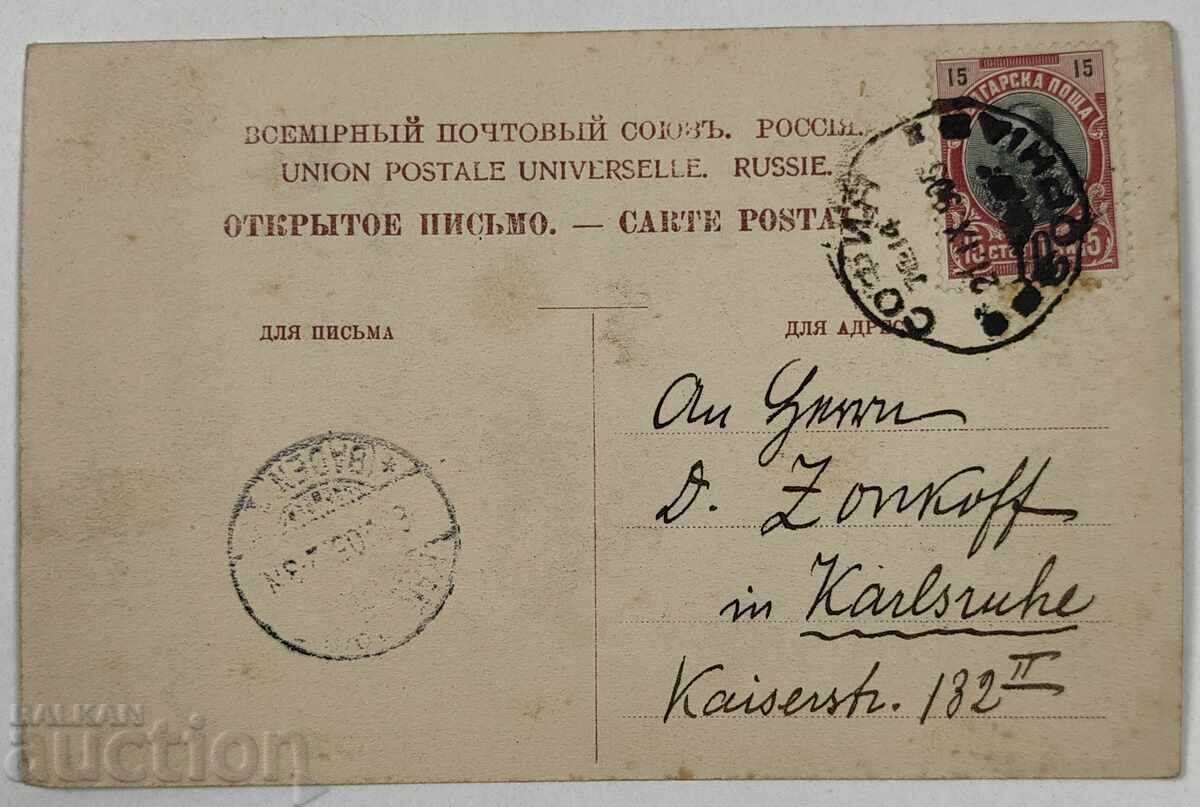 15 15
БЪЛГАРСКА ПОЩА
ВСЕМІРНЫЙ ПОЧТОВЫЙ СОЮЗЪ. РОССІЯ.
UNION POSTALE UNIVERSELLE. RUSSIE.
ОТКРЫТОЕ ПИСЬМО. — CARTE POSTALE
СОФИЯ
15 15
ДЛЯ ПИСЬМА
ДЛЯ АДРЕС
An Herrn
D. Zonkoff
in Karlsruhe
Kaiserstr. 132 II
* (BADEN)
BALKAN
auction